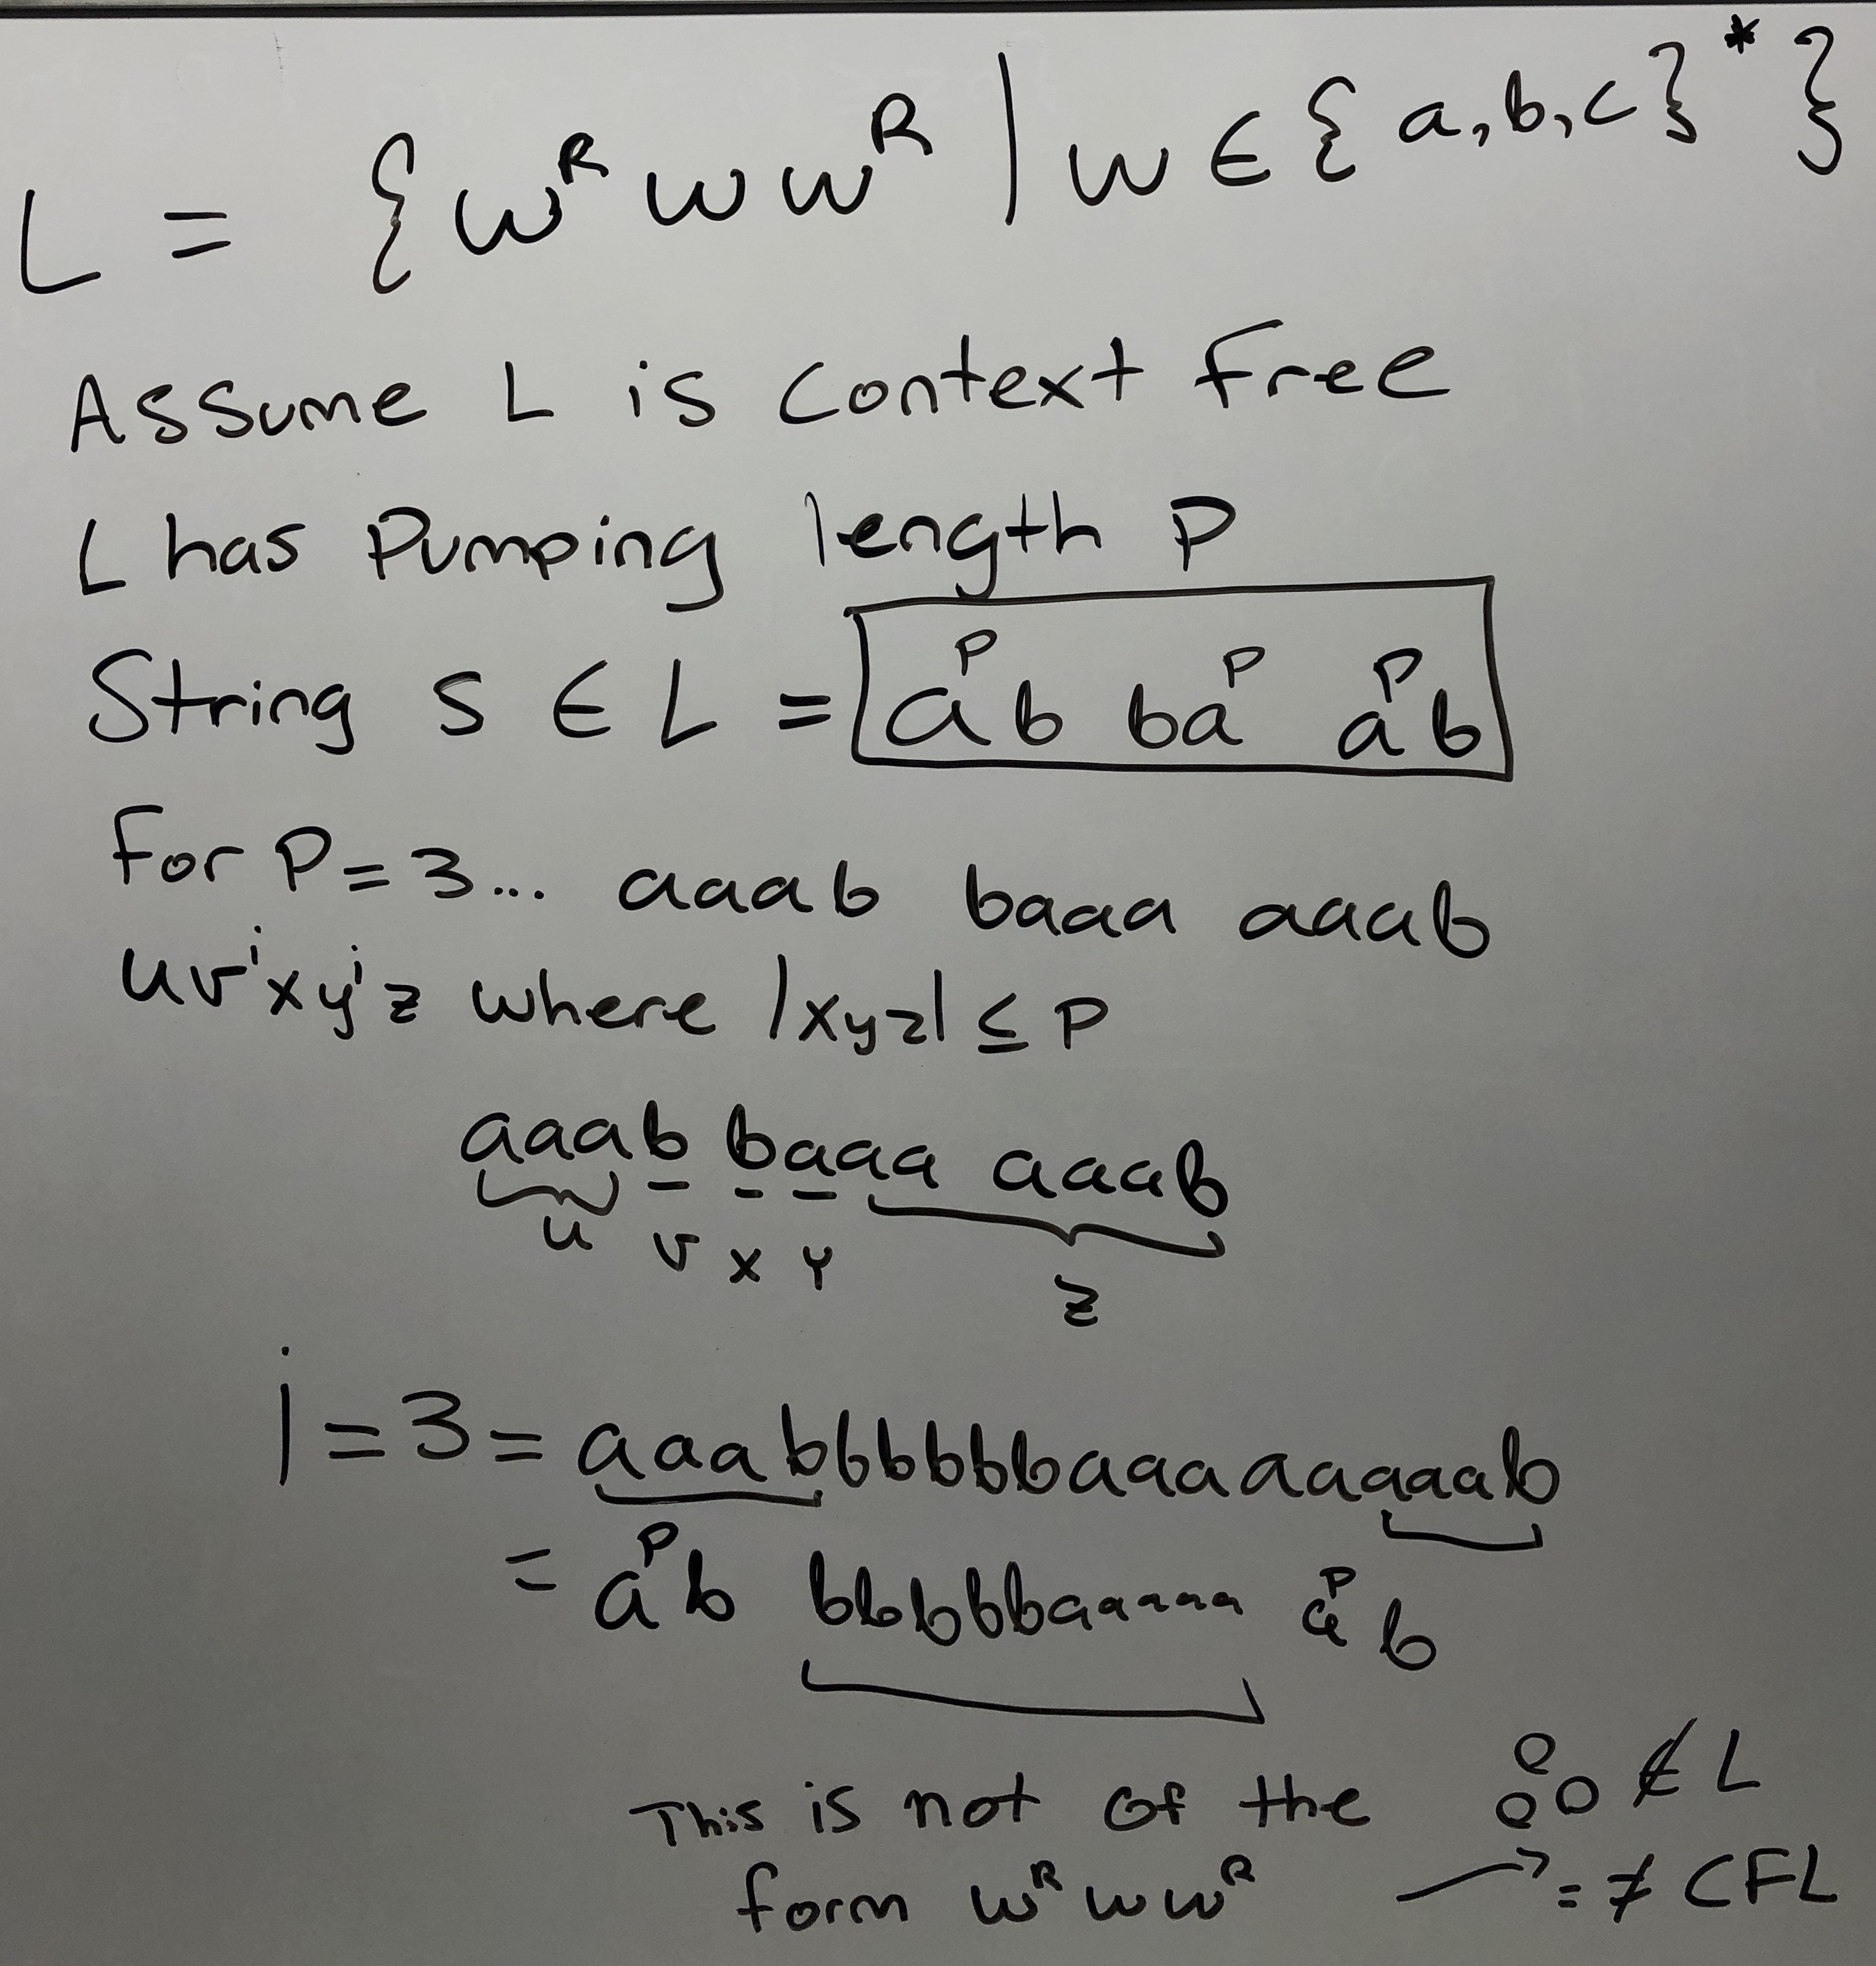 L = { w^R w w^R | w ∈ { a, b, c }* }
Assume L is context free
L has Pumping length P
String S ∈ L = a^P b ba^P a^P b
for P = 3... aaab baaa aaab
uv^i xy^i z where |xyz| ≤ P
aaab baaa aaab
u v x y z
i = 3 = aaabbbbbbbaaaaaaaaab
= a^P b bbbbbbaaaaaa a^P b
This is not of the
form w^R w w^R
∴ ∉ L
→ = ≠ CFL